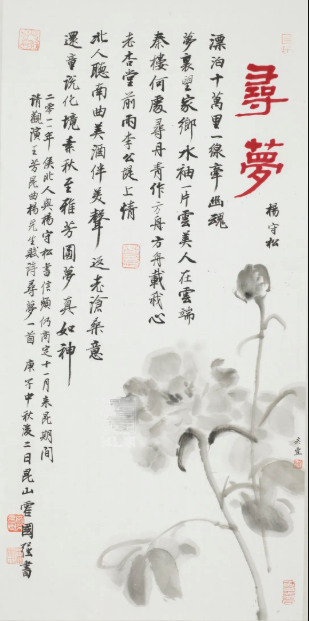 尋夢
楊守松
漂泊十萬里一線牽幽魂
夢裏望家鄉水袖一片雲美人在雲端
秦樓何處尋丹青作方舟方舟載我心
老杏堂前雨李公證上情
北人聽南曲美酒伴美聲 返老滄桑意
還童説化境素秋至雅芳園夢真如神
二零一一年侯北人與楊守松書信頻仍商定十一月來昆期間
請觀演王芳昆曲楊先生賦詩尋夢一首 庚子中秋後二日昆山霍國強書